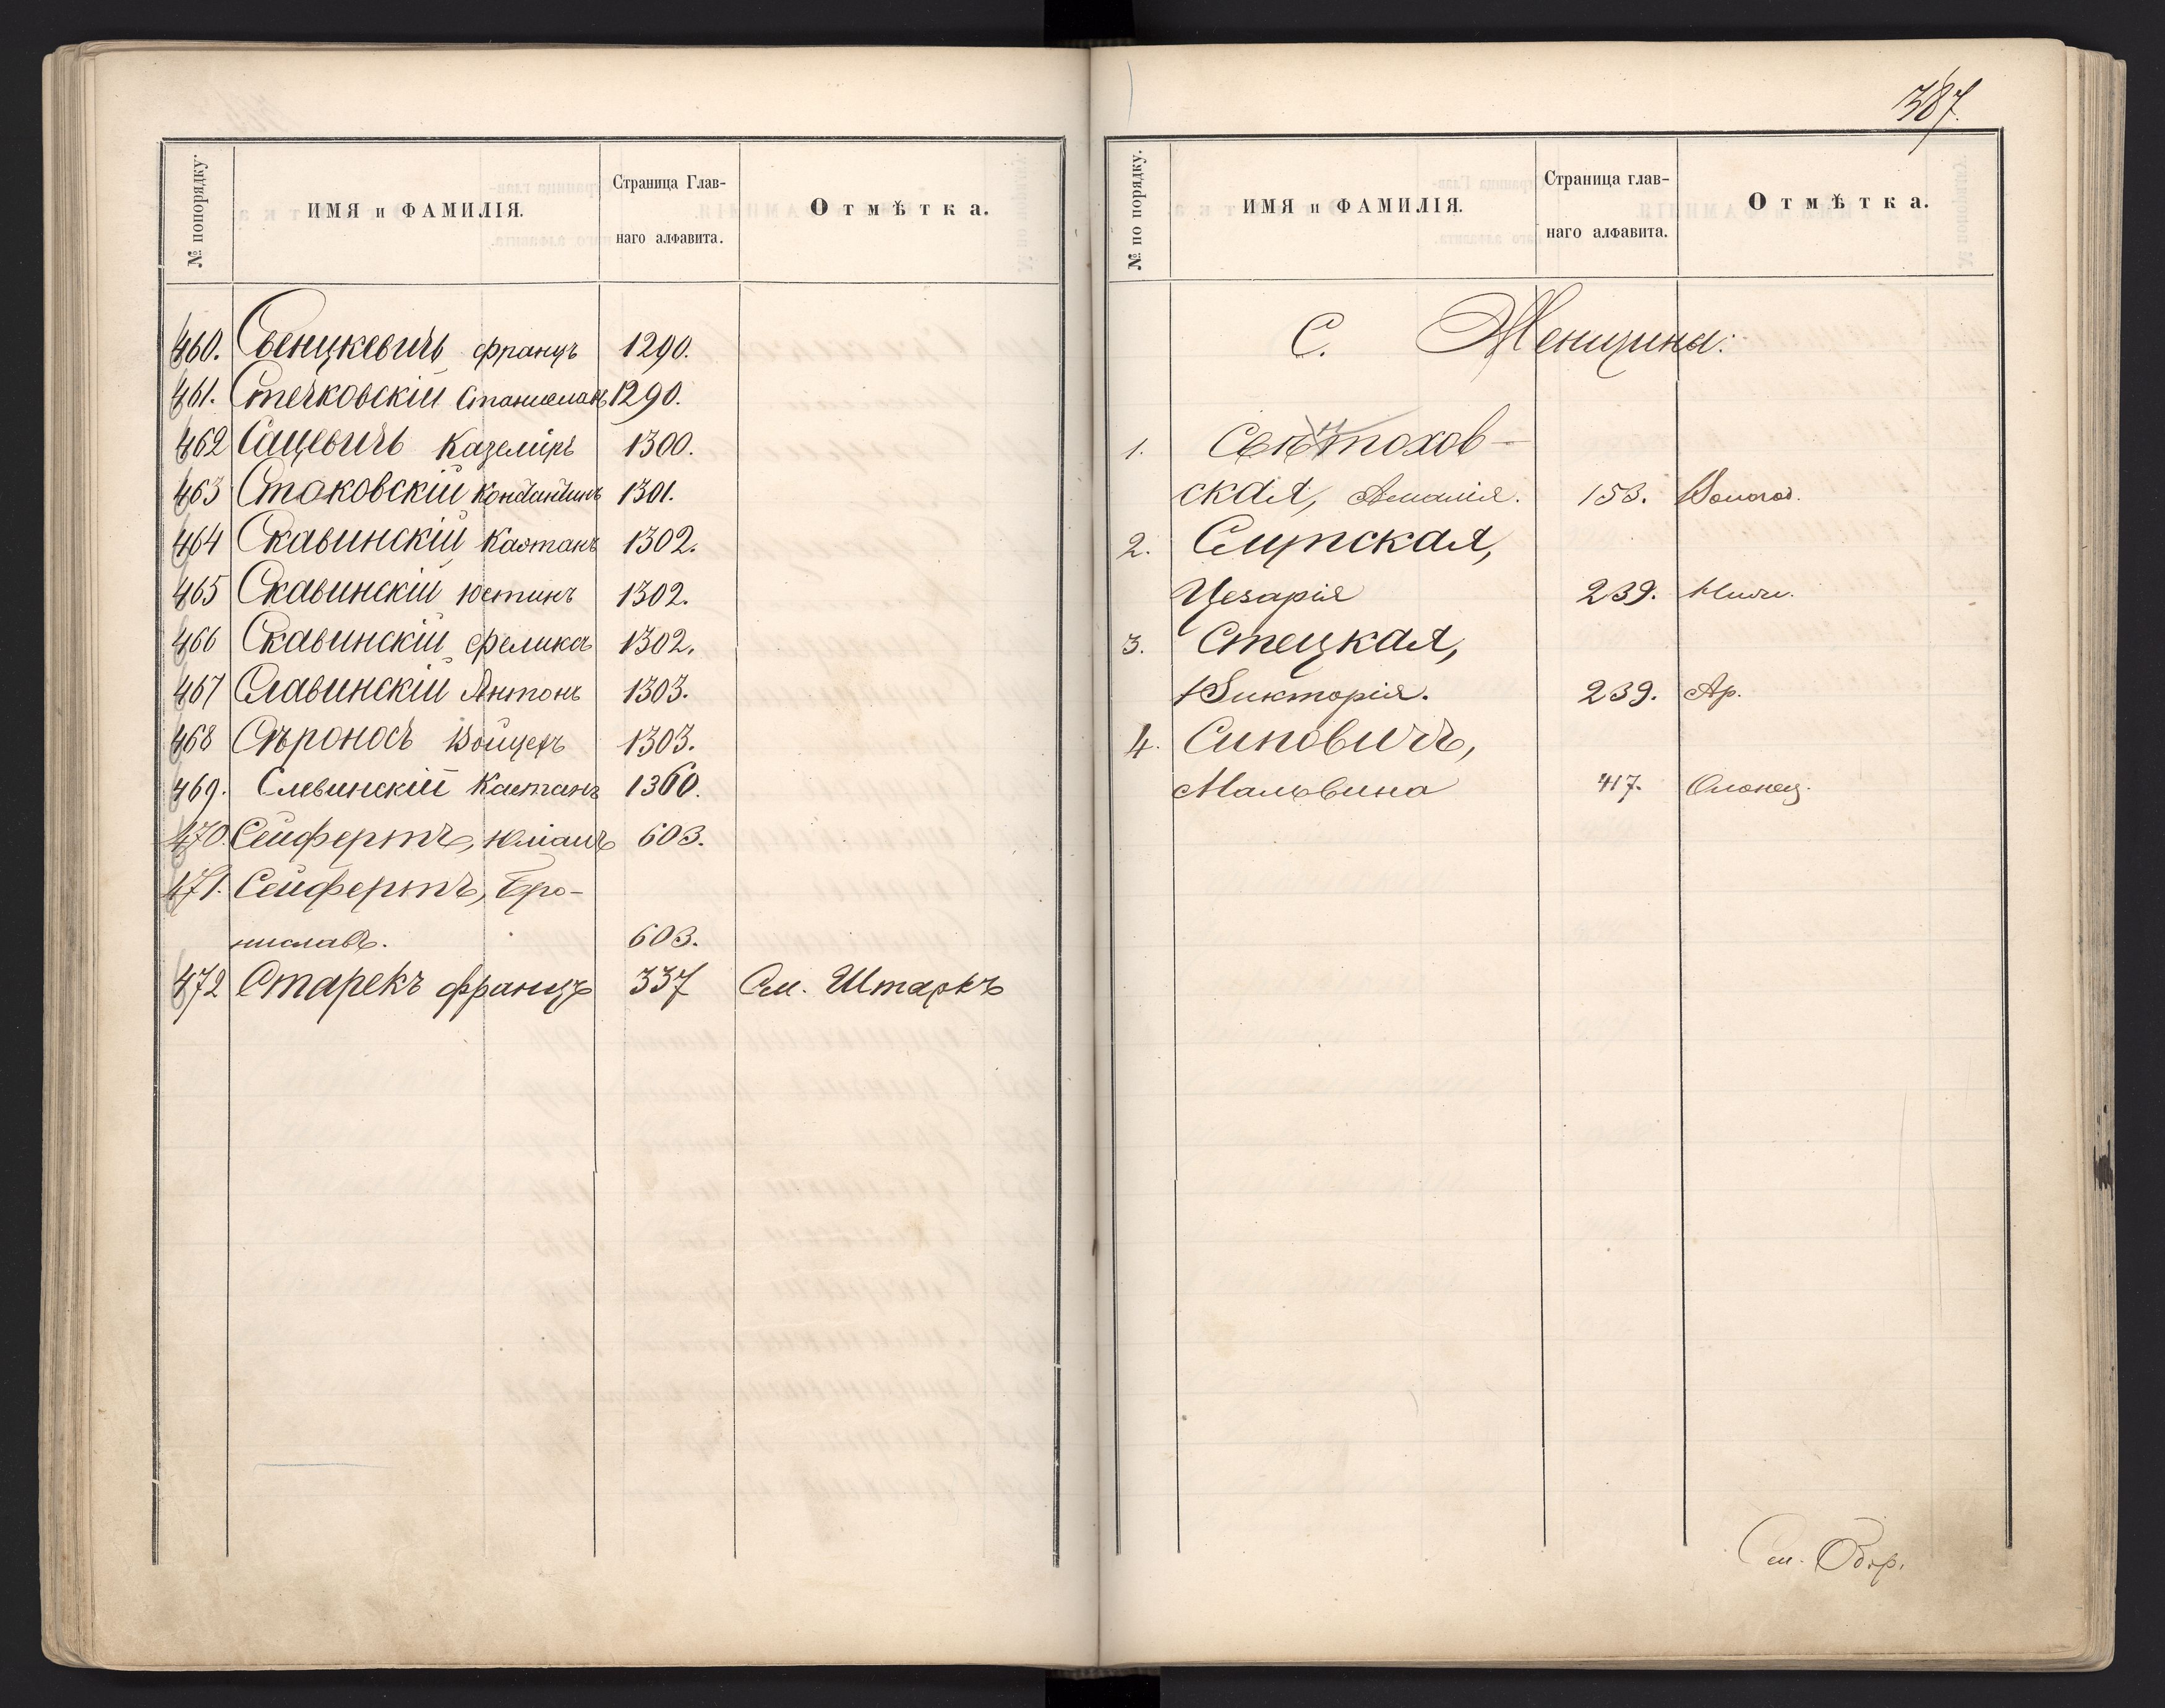 № попорядку.
ИМЯ и ФАМИЛІЯ.
Страница Глав-
наго алфавита.
Отмѣтка.
460. Свенцкевичъ Францъ 1290.
461. Стечковскій Станиславъ 1290.
462 Сацевичъ Каземіръ 1300.
463 Стаковскій Константинъ 1301.
464 Скавинскій Каэтанъ 1302.
465 Скавинскій Юстинъ 1302.
466 Скавинскій Феликсъ 1302.
467 Славинскій Антонъ 1303.
468 Сѣроносъ Войцехъ 1303.
469. Слевинскій Каетанъ 1360.
470. Сейфертъ, Юліанъ 603.
471. Сейфертъ, Бро-
ниславъ. 603.
472 Старекъ Францъ 337 См. Штаркъ
387.
№ по порядку.
ИМЯ и ФАМИЛІЯ.
Страница глав-
наго алфавита.
Отмѣтка.
С. Женщины:
1. Свентохов-
ская, Амалія. 153. Вологод.
2.
Цезарія 239.
3. Стецкая,
Викторія. 239. Ар.
4. Синовичъ,
Мальвина 417. Олонец.
См. Обор.